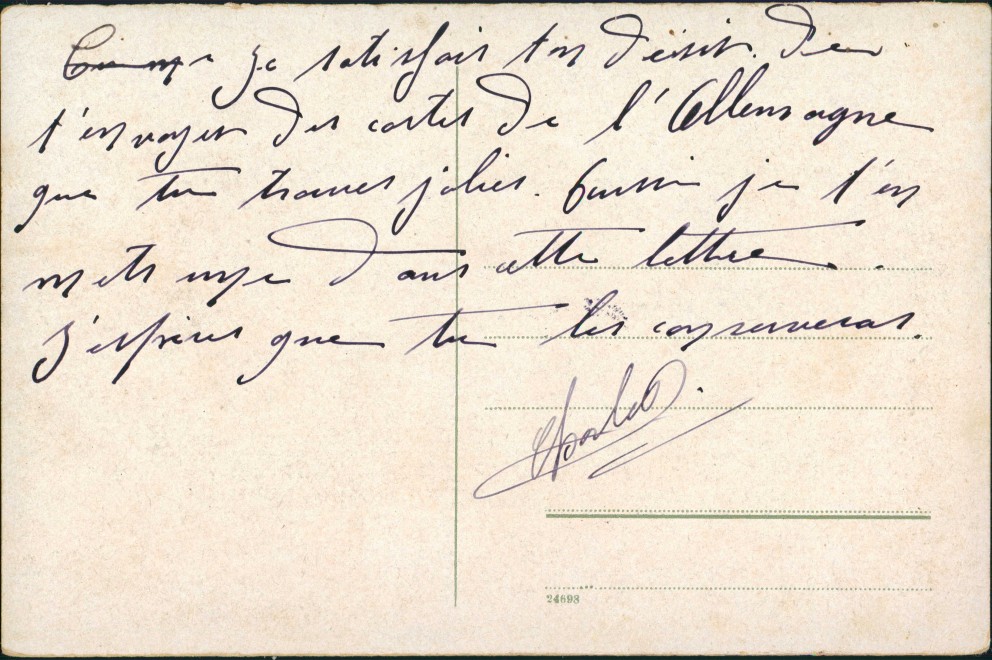 Comme je satisfait ton désir. De
t'envoyer des cartes de l'Allemagne
que tu trouves jolies. Aussi je t'en
mets une dans cette lettre.
J'espères que tu les conserveras.
24693